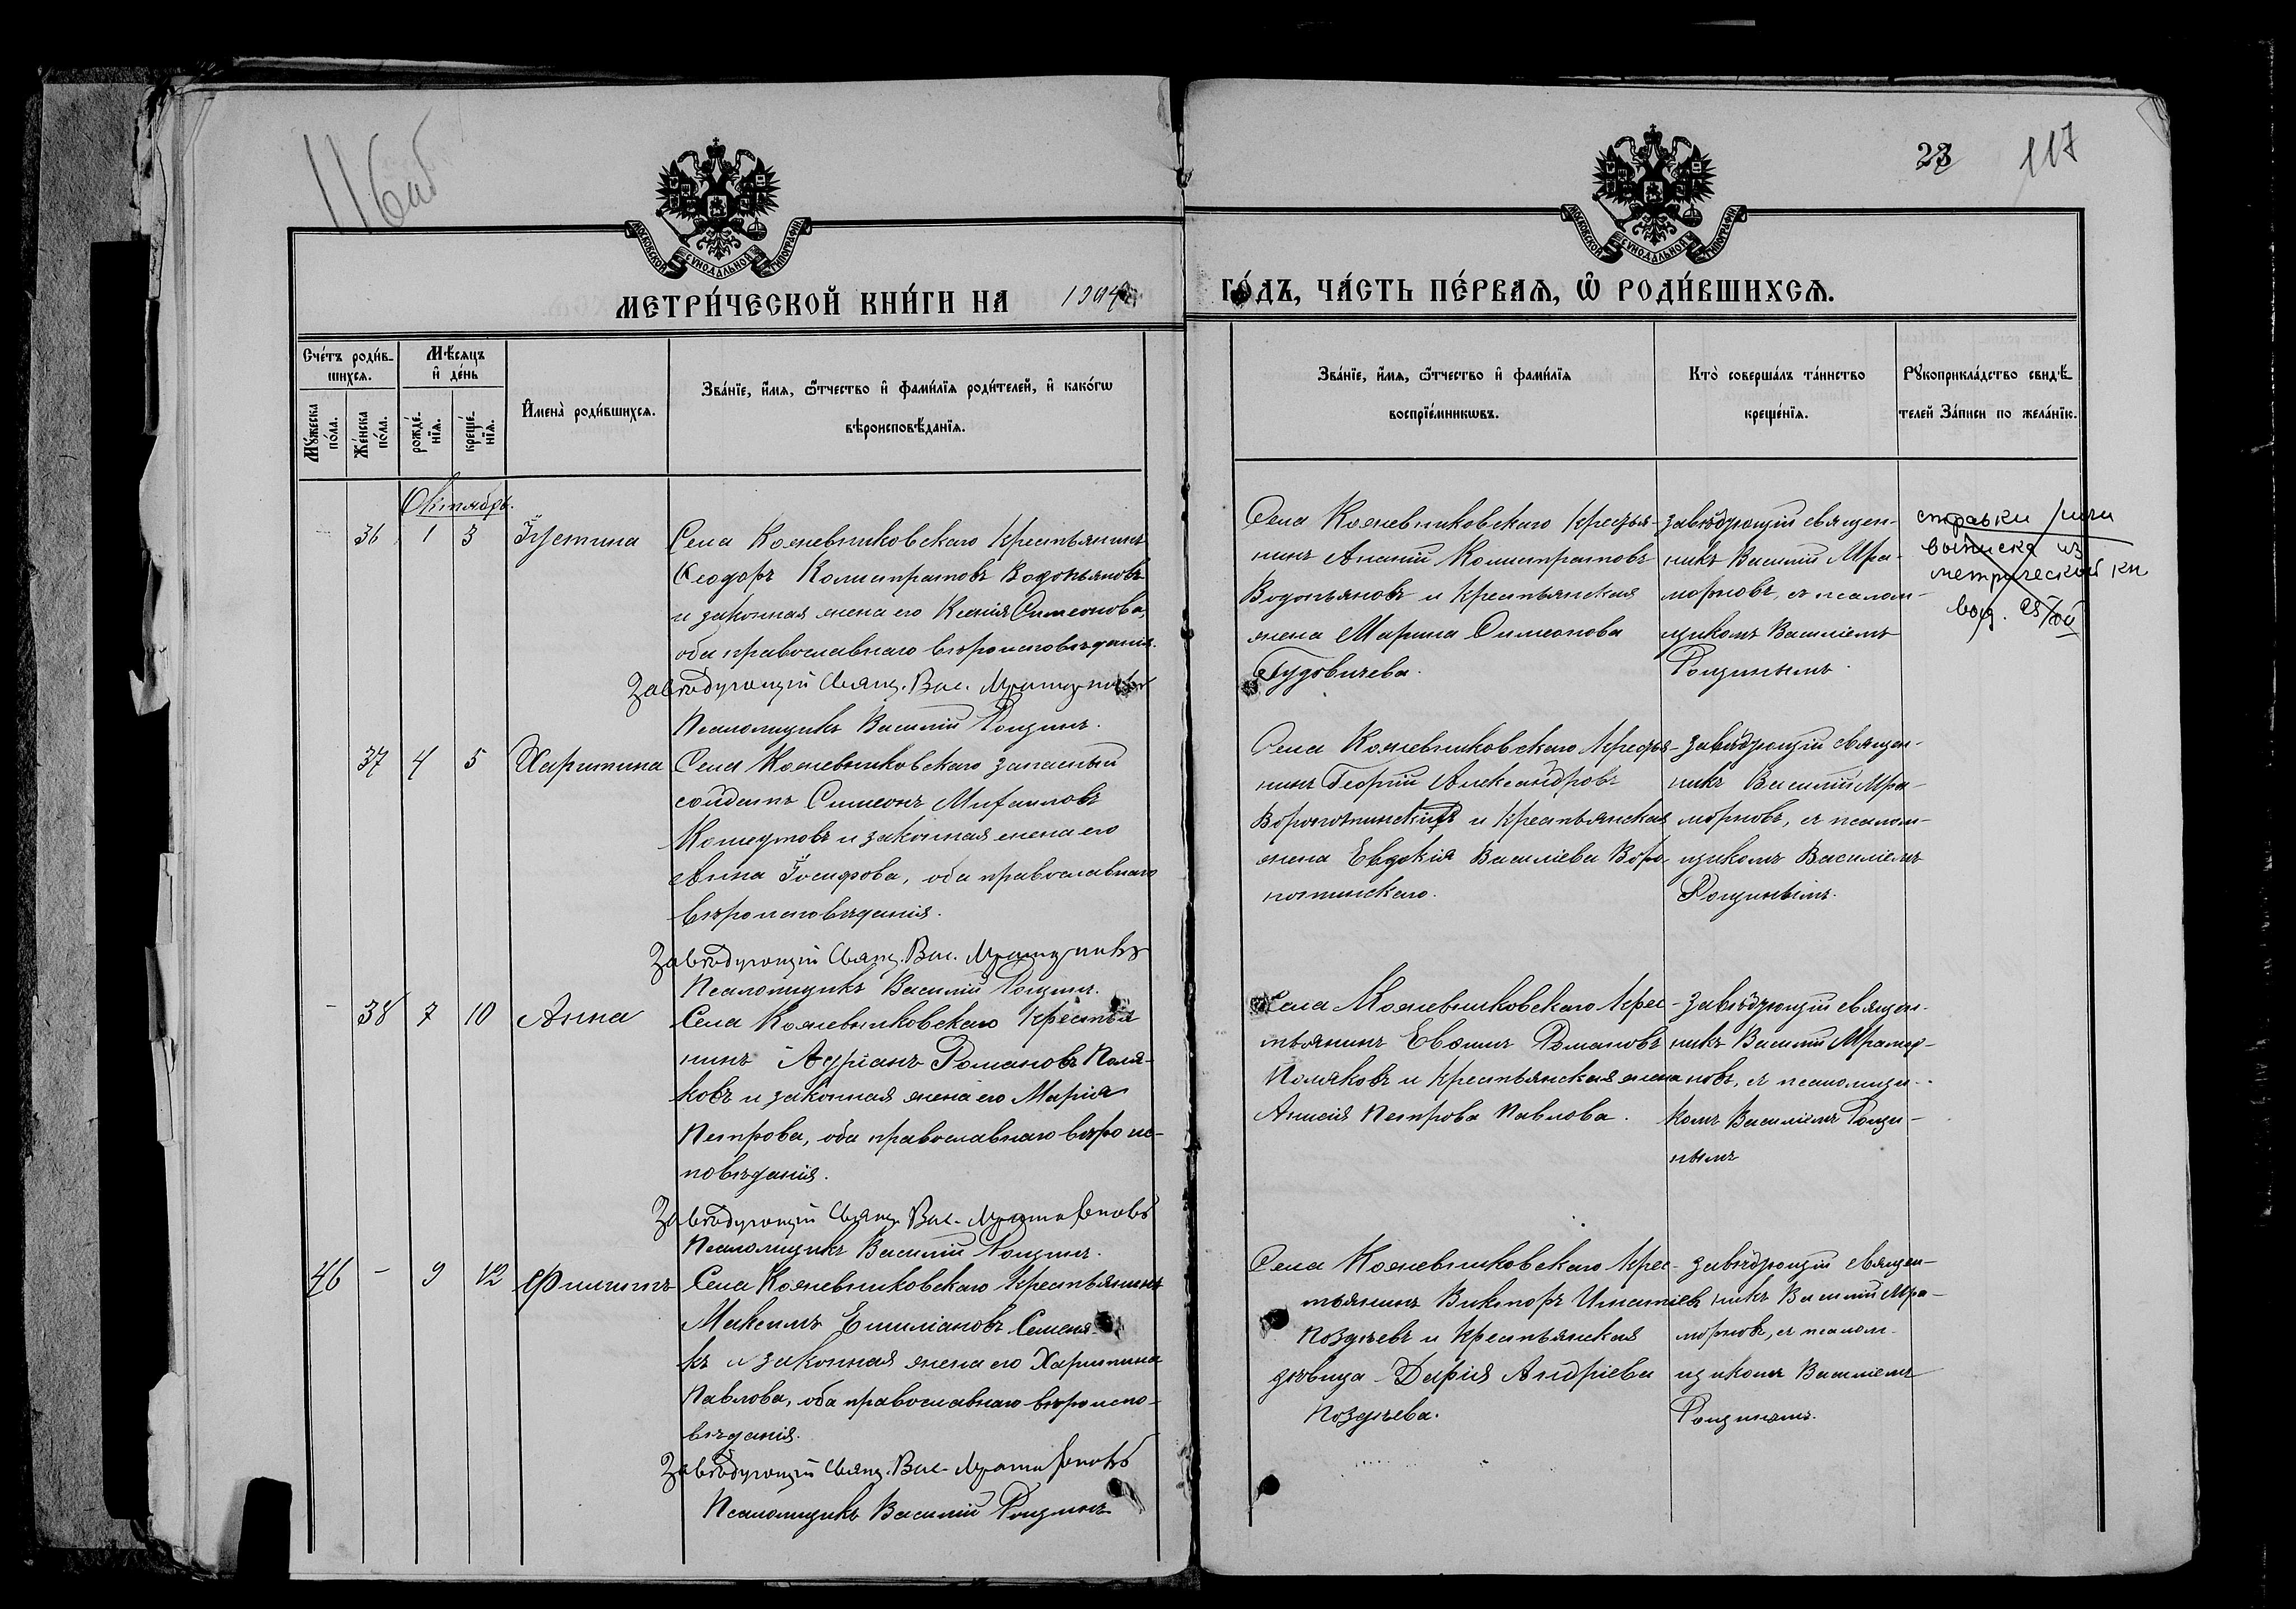 116об
23
117
МОСКОВСКОЙ СѴНОДАЛЬНОЙ ТИПОГРАФІИ
МОСКОВСКОЙ СѴНОДАЛЬНОЙ ТИПОГРАФІИ
МЕТРИ́ЧЕСКОЙ КНИ́ГИ НА 1904
ГО́ДЪ, ЧА́СТЬ ПЕ́РВАѦ, Ѡ҆ РОДИ́ВШИХСѦ.
Сче́тъ роди́в-
шихсѧ.
Мꙋ́жеска по́ла.
Же́нска по́ла.
Мѣ́сѧцъ и҆ де́нь
рожде́-нїѧ.
креще́-нїѧ.
И҆мена̀ роди́вшихсѧ.
Зва́нїе, и҆́мѧ, ѻ҆́тчество и҆ фами́лїѧ роди́телей, и҆ како́гѡ
вѣроисповѣ́данїѧ.
Зва́нїе, и҆́мѧ, ѻ҆́тчество и҆ фами́лїѧ
воспрїе́мникѡвъ.
Кто̀ соверша́лъ та́инство
креще́нїѧ.
Рꙋкоприкла́дство свидѣ́-
телей за́писи по жела́нїю.
Октябрь.
36 1 3 Іустина
Села Кожевниковскаго крестьянинъ
Ѳеодоръ Калистратовъ Водопьяновъ
и законная жена его Ксенія Симеонова,
оба православнаго вѣроисповѣданія.
Завѣдующій Свящ. Вас. Мраморновъ
Псаломщикъ Василій Рощинъ.
Села Кожевниковскаго кресть-
янинъ Ананій Калистратовъ
Водопьяновъ и крестьянская
жена Марина Симеонова
Гудовичева.
завѣдующій священ-
никъ Василій Мра-
морновъ, съ псалом-
щикомъ Василіемъ
Рощинымъ.
справки / или
выписка из
метрической кн
выд.
37 4 5 Харитина
Села Кожевниковскаго запасный
солдатъ Симеонъ Михаиловъ
и законная жена его
Анна Іосифова, оба православнаго
вѣроисповѣданія.
Завѣдующій Свящ. Вас. Мраморновъ
Псаломщикъ Василій Рощинъ.
Села Кожевниковскаго крестья-
нинъ Георгій Александровъ
и крестьянская
жена Евдокія Василіева
завѣдующій священ-
никъ Василій Мра-
морновъ, съ псалом-
щикомъ Василіемъ
Рощинымъ.
- 38 7 10 Анна
Села Кожевниковскаго крестья
нинъ Адріанъ Романовъ Поля-
ковъ и законная жена его Марія
Петрова, оба православнаго вѣроис-
повѣданія.
Завѣдующій Свящ. Вас. Мраморновъ
Псаломщикъ Василій Рощинъ.
Села Кожевниковскаго крес-
тьянинъ Евѳимъ Романовъ
Поляковъ и крестьянская жена
Анисія Петрова Павлова.
завѣдующій священ-
никъ Василій Мрамор-
новъ, съ псаломщи-
комъ Василіемъ Рощи-
нымъ
46 - 9 12 Филиппъ
Села Кожевниковскаго крестьянинъ
Максимъ Емиліановъ Семеня-
къ и законная жена его Харитина
Павлова, оба православнаго вѣроиспо-
вѣданія.
Завѣдующій Свящ. Вас. Мраморновъ
Псаломщикъ Василій Рощинъ
Села Кожевниковскаго крес-
тьянинъ Викторъ Игнатіевъ
Поздѣевъ и крестьянская
дѣвица Дарія Андріева
Поздѣева.
завѣдующій священ-
никъ Василій Мра-
морновъ, съ псалом-
щикомъ Василіемъ
Рощинымъ.